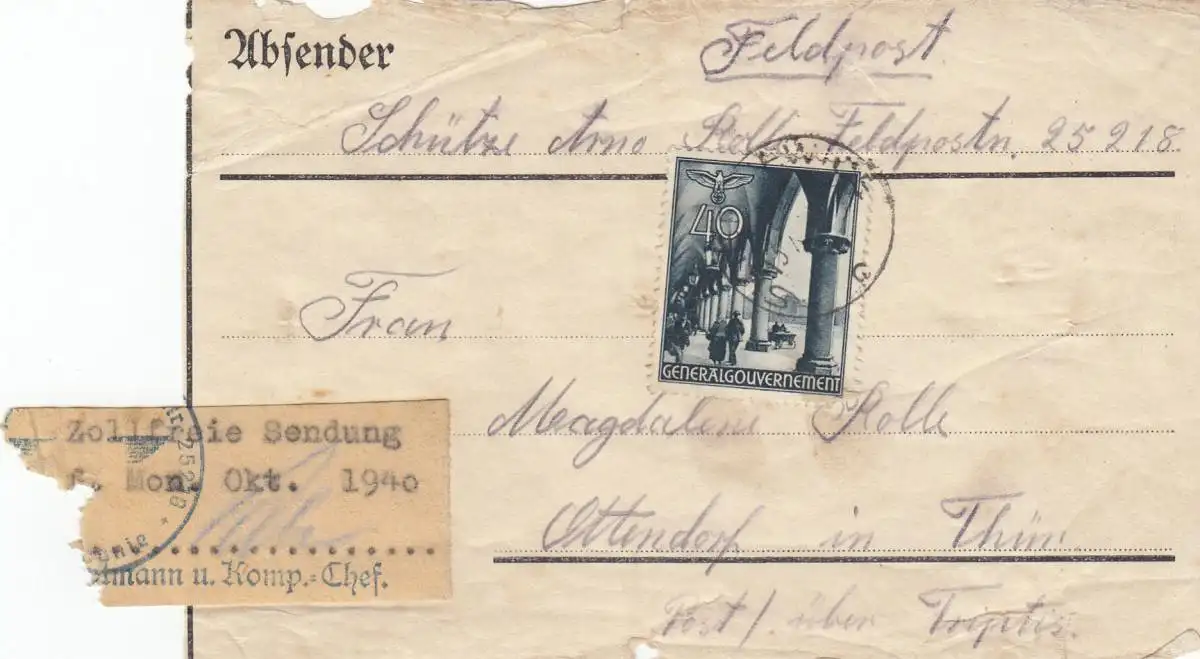 Absender
Feldpost
Schütze Arno Kolle Feldpostn. 25218.
40
GENERALGOUVERNEMENT
Frau
Magdalene Kolle
Ottendorf in Thür.
Post / über Triptis.
Zollfreie Sendung
f. Mon. Okt. 1940
u. Komp.-Chef.
25218